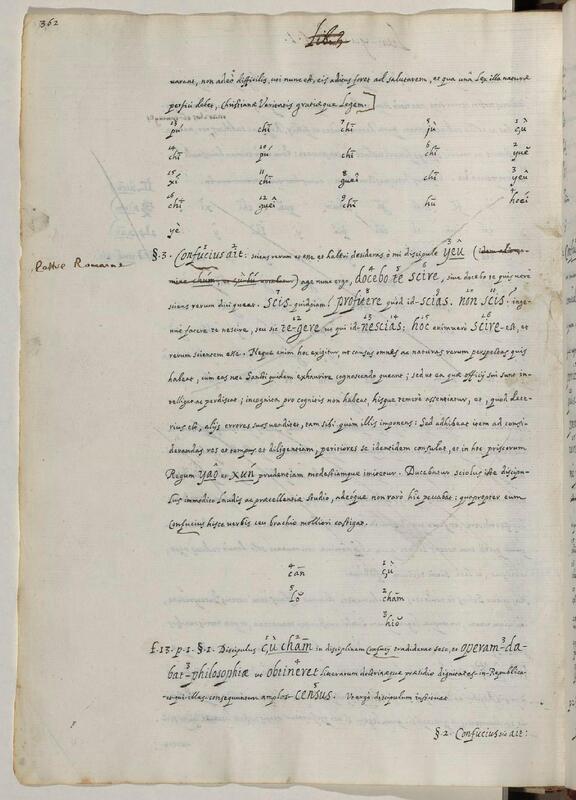 362
Lib. 2
uarant, non adeò difficilis, uti nunc est, eis aditus foret ad salutarem, et qua unâ Lex illa naturæ
perfici debet, Christianæ Veritatis gratiæque Legem.]
13 pú chī 7 chī 5 jù 1 çù
14 chī 10 pú chī 6 chī 2 yuĕ
15 xí 11 chī 8 guêi chī 3 yeû
16 chī 12 guêi 9 chī hū 4 hoéi
yè
§.3. Confucius ait: sciens rerum et esse et haberi desideras ô mi discipule 3 yeû
Rattve Romane
age nunc ergo, 4 docebo 5 te 6 scire, sive docebo te quis uerè
sciens rerum dici queat. 7 Scis quidpiam? 8 profitere quòd id 9 scias. 10 non 11 scis. inge-
nuè facere te nescire, seu sic 12 te-gere ut qui id 13 14 nescias; 15 hoc enimuerò 16 scire est, et
rerum scientem esse. Neque enim hoc exigitur, ut census omnes ac naturas rerum perspectas quis
habeat, cùm eas nec Sancti quidem exhaurire cognoscendo queant; sed ut ea quæ officij sui sunt in-
telligat ac perdiscat; incognita pro cognitis non habeat, hisque temerè assentiatur, et, quod dete-
rius est, alijs errores suos uenditet, tam sibi quàm illis imponens: Sed adhibeat item ad consi-
derandas res et tempus et diligentiam, peritiores se identidem consulat, et in hoc priscorum
Regum yâo et xún prudentiam modestiamque imitetur. Ducebatur sciolus iste discipu-
lus immodico laudis ac præcellentiæ studio, adeoque non rarò hîc peccabat: quapropter eum
Confucius hisce uerbis ceu brachio molliori castigat.
4 cān 1 çù
5 lŏ 2 cham
3 hiŏ
f.13. p.1. §.1. Discipulus 1 çù 2 cham in disciplinam Confucij tradiderat sese, et operam 3 da-
bat philosophiæ ut 4 obtineret literarum doctrinæque præsidio dignitates in Republica
et qui illas consequuntur amplos 5 census. Uerùm discipulum instituit
§.2. Confucius sic ait: